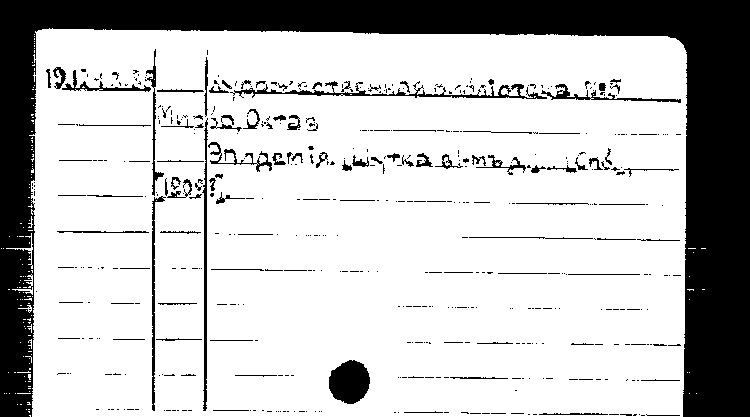 Художественная библіотека. №5
Мирбо, Октав
Эпидемія. Шутка въ 1-мъ д. [Спб.,
[1909?].